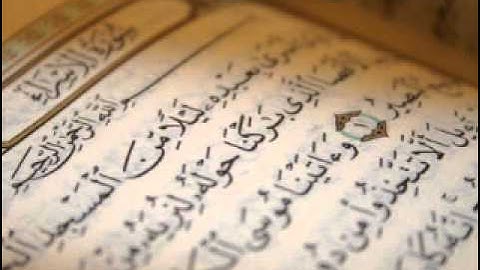 سُورَةُ الْإِسْرَاءِ
اللَّهِ الرَّحْمَٰنِ الرَّحِيمِ
سْرَىٰ بِعَبْدِهِۦ لَيْلًا مِّنَ الْمَسْجِدِ الْ
قْصَا الَّذِي بَٰرَكْنَا حَوْلَهُۥ لِنُرِيَهُۥ مِنْ
صِيرُ وَءَاتَيْنَا مُوسَى الْكِ
ءِيلَ أَلَّا تَتَّخِذُوا۟ مِن دُو
إِنَّهُۥ كَ